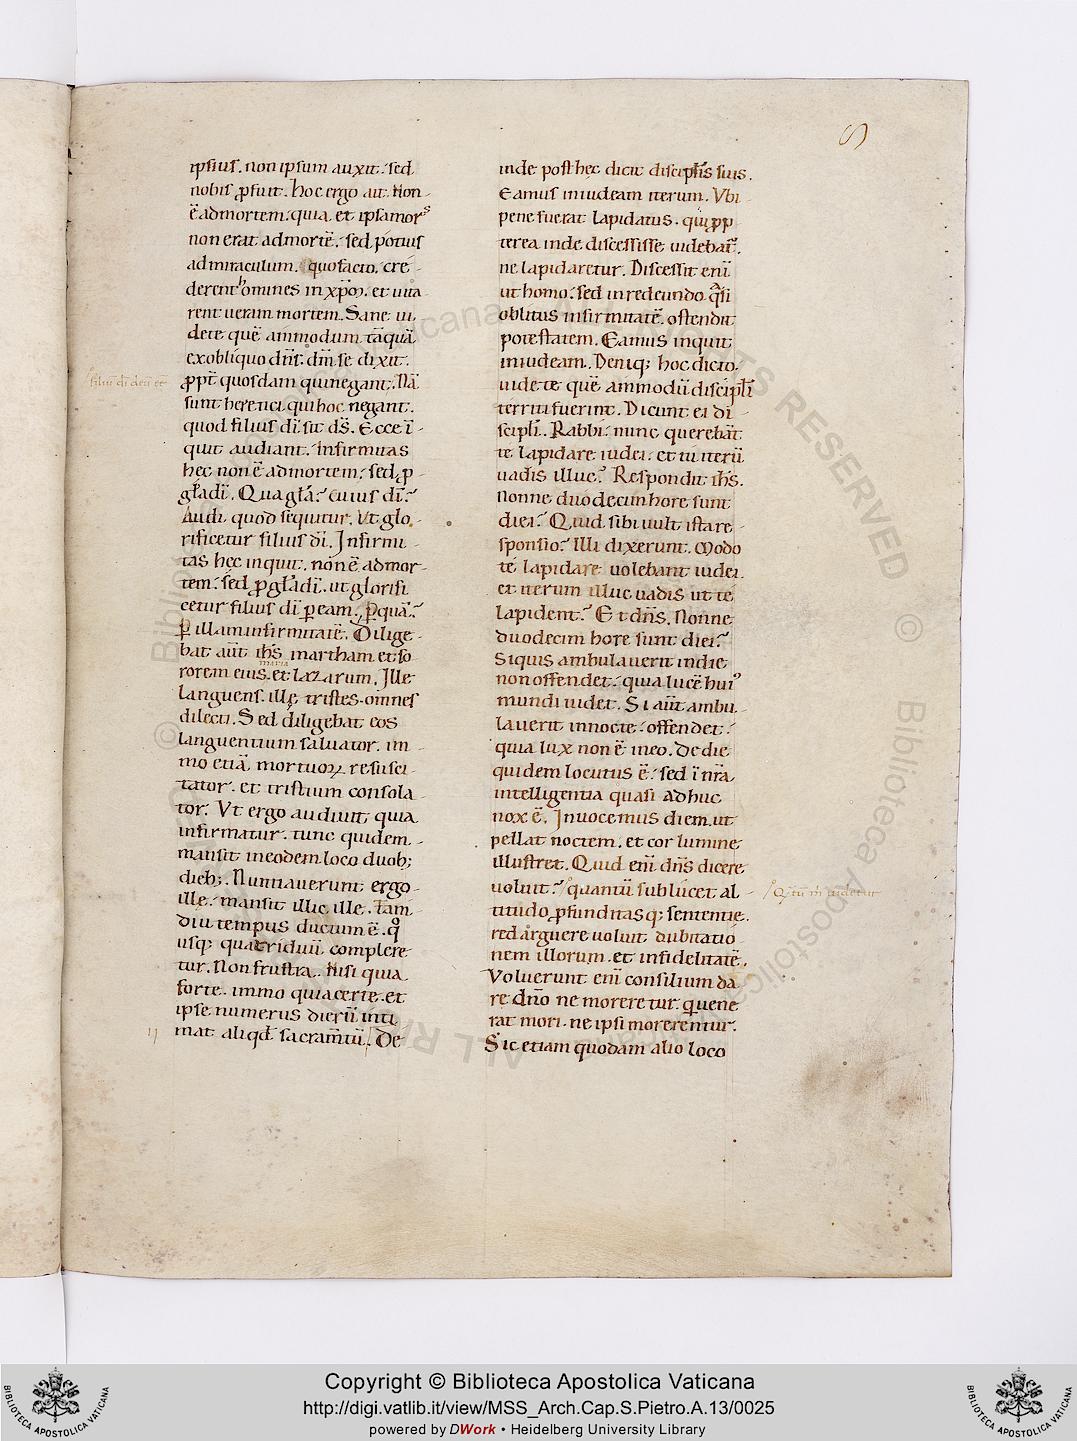 ipsius. non ipsum auxit. sed
nobis ꝓfuit. hoc ergo ait. Non
ē ad mortem. quia et ipsa mors
non erat ad mortē. sed potius
ad miraculum. quo facto. cre
derent homines in xp̄m. et uita
rent ueram mortem. Sane ui
dete quē ammodum tāquā
ex obliquo dn̄s. dm̄ se dixit.
ꝓpt̄ quosdam qui negant. Nā
sunt heretici qui hoc negant.
quod filius dī sit d̄s. Ecce ī
quit audiant. Infirmitas
hec non ē ad mortem. sed ꝓ
gl̄a dī. Qua gl̄a? cuius dī?
Audi quod sequitur. Vt glo
rificetur filius dī. Infirmi
tas hęc inquit. non ē ad mor
tem. sed ꝓ gl̄a dī. ut glorifi
cetur filius dī ꝑ eam. Ꝑ quā?
Ꝑ illam infirmitatē. Dilige
bat aūt ih̄s martham et so
maria
rorem eius. et lazarum. Ille
languens. illę tristes. omnes
dilecti. Sed diligebat eos
languentium saluator. im
mo etiā mortuoꝝ resusci
tator. et tristium consola
tor. Vt ergo audiuit quia
infirmatur. tunc quidem
mansit in eodem loco duob;
dieb;. Nuntiauerunt ergo
ille. mansit illic ille. tam
diu tempus ductum ē. qͦ
usq; quatriduū complere
tur. Non frustra. Nisi quia
forte. immo quia certe. et
ipse numerus dierū inti
mat aliqd sacram̄tū. De
filiū dī deū eē
inde post hec dicit discipl̄is suis.
Eamus in iudeam iterum. Vbi
pene fuerat lapidatus. qui ꝓp
terea inde discessisse uidebat̄.
ne lapidaretur. Discessit enī
ut homo. sed in redeundo q̄si
oblitus infirmitatē. ostendit
potestatem. Eamus inquit
in iudeam. Deniq; hoc dicto.
uidete quē ammodū discipl̄i
territi fuerint. Dicunt ei di
scipl̄i. Rabbi. nunc querebāt
te lapidare iudei. et tu iterū
uadis illuc? Respondit ih̄s.
Nonne duodecim hore sunt
diei? Quid sibi uult ista re
sponsio? Illi dixerunt. Modo
te lapidare uolebant iudei.
et iterum illuc uadis ut te
lapident? Et dn̄s. Nonne
duodecim hore sunt diei?
Siquis ambulauerit in die
non offendet. quia lucē huiꝰ
mundi uidet. Si aūt ambu
lauerit in nocte. offendet.
quia lux non ē in eo. De die
quidem locutus ē. sed ī nr̄a
intelligentia quasi adhuc
nox ē. Inuocemus diem. ut
pellat noctem. et cor lumine
illustret. Quid enī dn̄s dicere
uoluit? quantū subluicet al
titudo ꝓfunditasq; sententie.
redarguere uoluit dubitatio
nem illorum. et infidelitatē.
Voluerunt enī consilium da
re dn̄o ne moreretur. qui uene
rat mori. ne ipsi morerentur.
Sic etiam quodam alio loco
Copyright © Biblioteca Apostolica Vaticana
http://digi.vatlib.it/view/MSS_Arch.Cap.S.Pietro.A.13/0025
powered by DWork • Heidelberg University Library
BIBLIOTECA APOSTOLICA VATICANA
BIBLIOTECA APOSTOLICA VATICANA